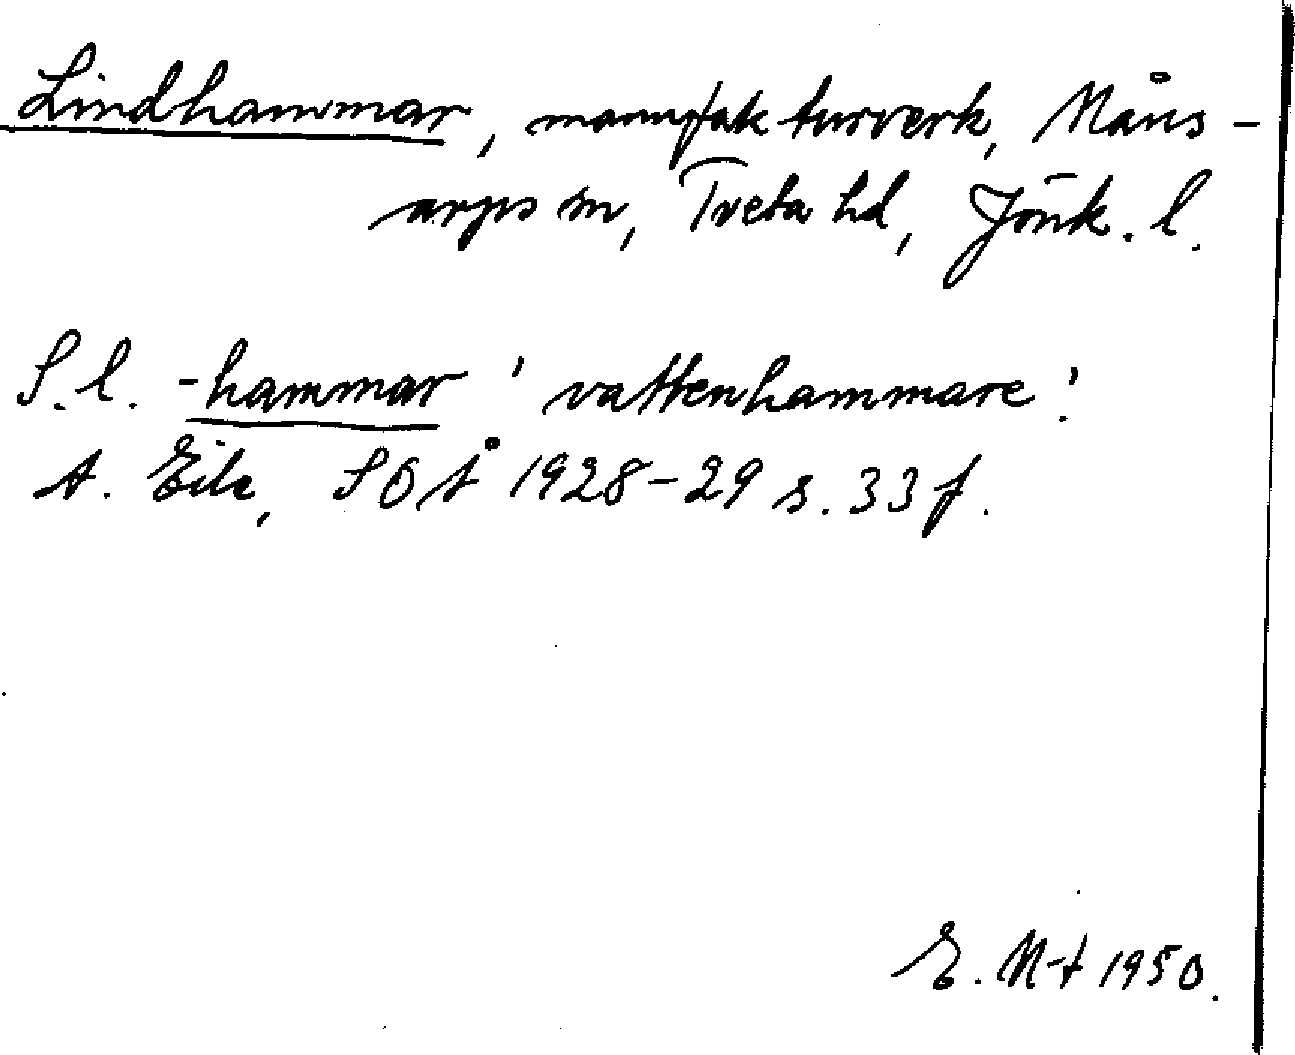 Lindhammar, manufakturverk, Måns-
arps sn, Tveta hd, Jönk. l.
S. l. -hammar 'vattenhammare'.
A. Ejle, SOÅ 1928-29 s. 33 f.
E. N-t 1950.